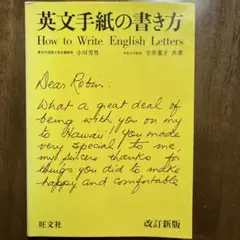 英文手紙の書き方
How to Write English Letters
小川芳男
共著
Dear Robin:
What a great deal of
being with you on my
to Hawaii! you made
very special to me,
my sincere thanks for
things you did to make
happy and comfortable
旺文社
改訂新版